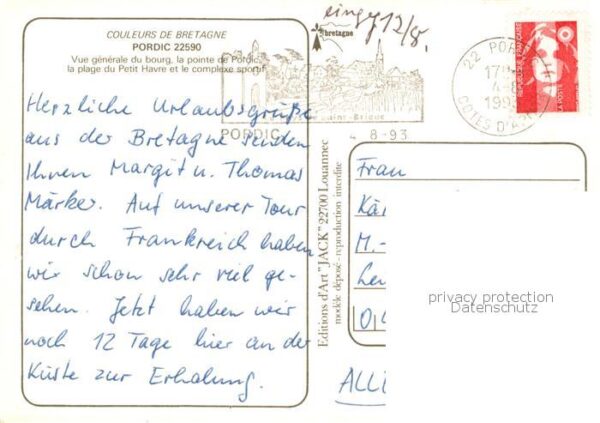 COULEURS DE BRETAGNE
PORDIC 22590
Vue générale du bourg, la pointe de Pordic,
la plage du Petit Havre et le complexe sportif
Herzliche Urlaubsgrüße
aus der Bretagne senden
Ihnen Margit u. Thomas
Märker. Auf unserer Tour
durch Frankreich haben
wir schon sehr viel ge-
sehen. Jetzt haben wir
noch 12 Tage hier an der
Küste zur Erholung.
eing 12/8.
bretagne
PORDIC
4-8-93
22 POR
17
4-8
199
COTES D'A
REPUBLIQUE FRANÇAISE
LA POSTE
Editions d'Art "JACK" 22700 Louannec
modèle déposé - reproduction interdite
Frau
Kä
M.-
Le
ALL
privacy protection
Datenschutz